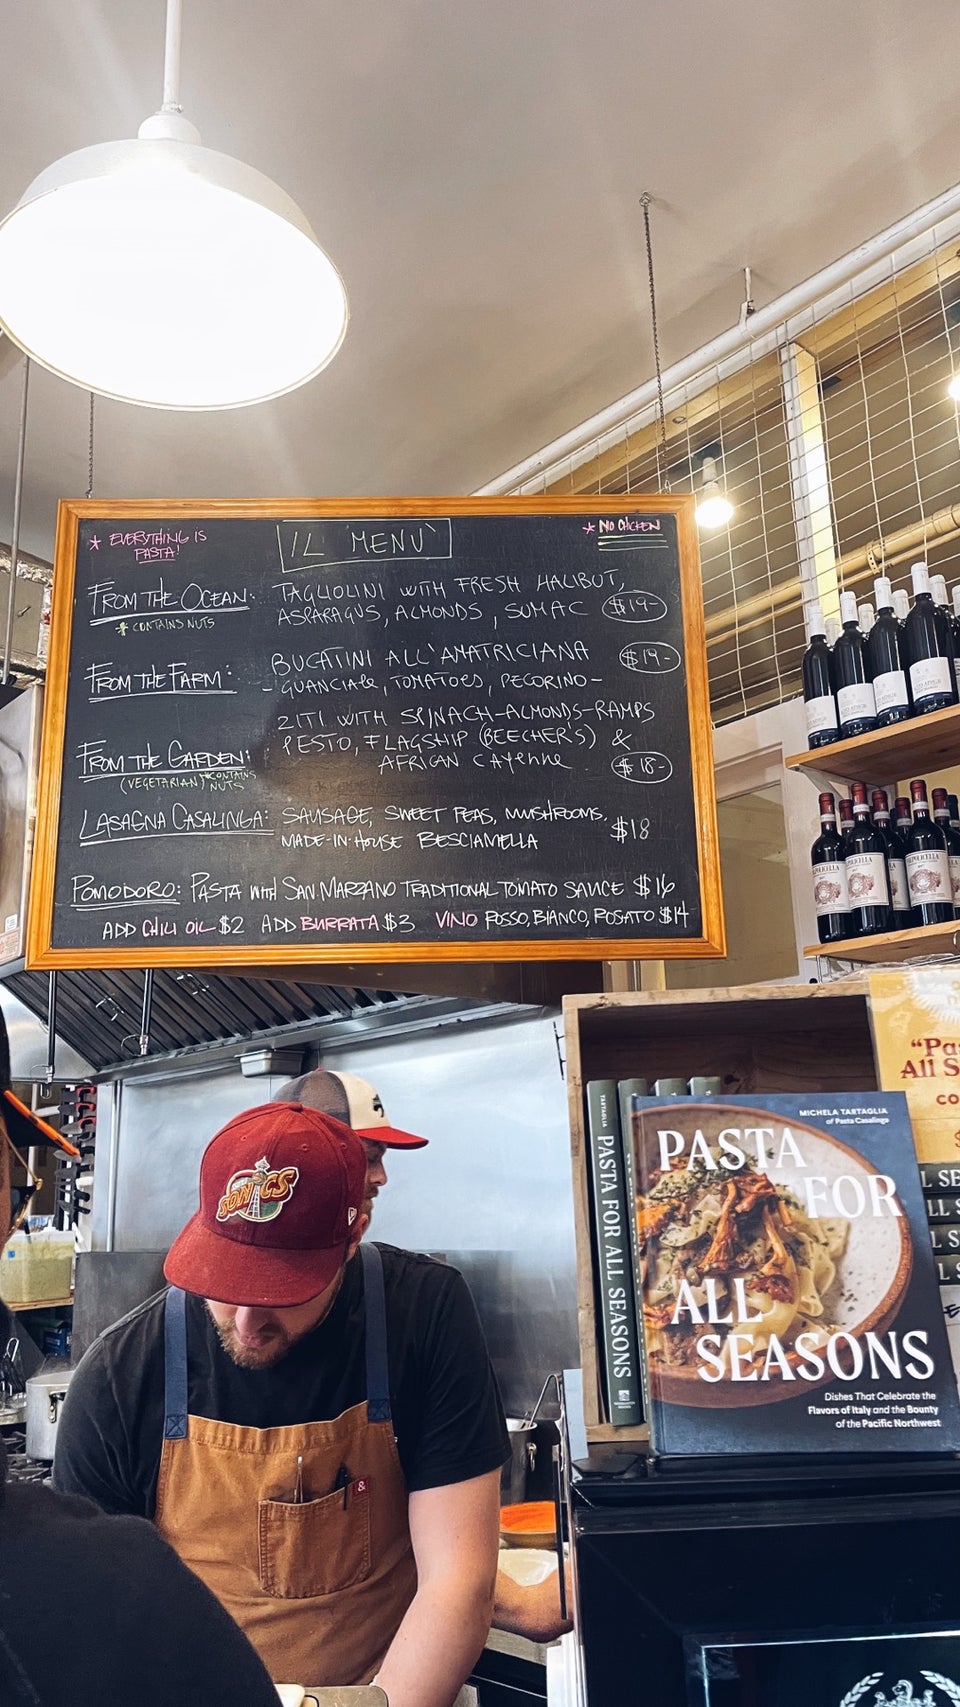 * EVERYTHING IS
PASTA!
IL MENU`
* NO CHICKEN
FROM THE OCEAN:
* CONTAINS NUTS
TAGLIOLINI WITH FRESH HALIBUT,
ASPARAGUS, ALMONDS, SUMAC $19-
FROM THE FARM:
BUCATINI ALL'AMATRICIANA $19-
- GUANCIALE, TOMATOES, PECORINO -
FROM THE GARDEN:
(VEGETARIAN) *CONTAINS
NUTS
ZITI WITH SPINACH-ALMONDS-RAMPS
PESTO, FLAGSHIP (BEECHER'S) &
AFRICAN CAYENNE $18-
LASAGNA CASALINGA: SAUSAGE, SWEET PEAS, MUSHROOMS,
MADE-IN-HOUSE BESCIAMELLA $18
POMODORO: PASTA WITH SAN MARZANO TRADITIONAL TOMATO SAUCE $16
ADD CHILI OIL $2 ADD BURRATA $3 VINO ROSSO, BIANCO, ROSATO $14
SONICS
&
TARTAGLIA
PASTA FOR ALL SEASONS
MICHELA TARTAGLIA
of Pasta Casalinga
PASTA
FOR
ALL
SEASONS
Dishes That Celebrate the
Flavors of Italy and the Bounty
of the Pacific Northwest
"Pa
All S
CO